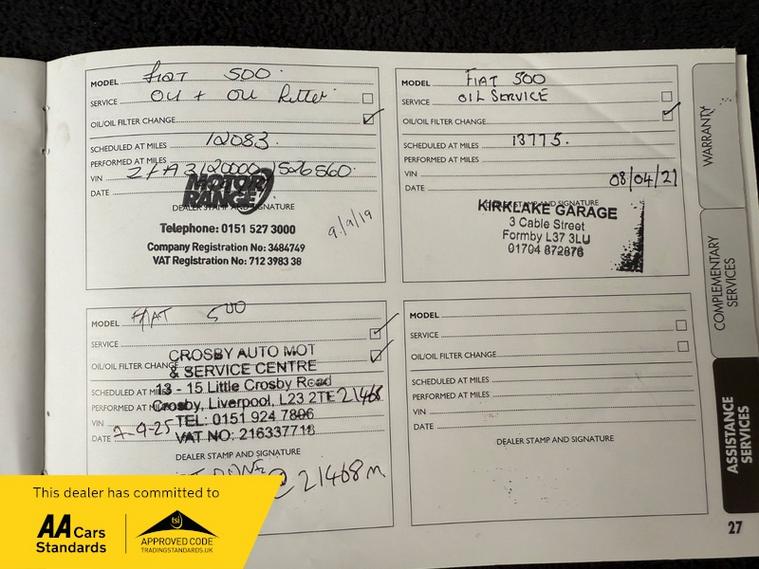 MODEL Fiat 500.
SERVICE Oil + Oil filter
OIL/OIL FILTER CHANGE
SCHEDULED AT MILES 12083.
PERFORMED AT MILES
VIN ZFA3120000J526560.
DATE
MOTOR RANGE
DEALER STAMP AND SIGNATURE
Telephone: 0151 527 3000
9/9/19
Company Registration No: 3484749
VAT Registration No: 712 3983 38
MODEL FIAT 500
SERVICE OIL SERVICE
OIL/OIL FILTER CHANGE
SCHEDULED AT MILES 13775.
PERFORMED AT MILES
VIN
DATE 08/04/21
DEALER STAMP AND SIGNATURE
KIRKLAKE GARAGE
3 Cable Street
Formby L37 3LU
01704 872876
MODEL FIAT 500
SERVICE
OIL/OIL FILTER CHANGE
CROSBY AUTO MOT
& SERVICE CENTRE
SCHEDULED AT MILES
13 - 15 Little Crosby Road
PERFORMED AT MILES 21468
Crosby, Liverpool, L23 2TE
VIN
TEL: 0151 924 7896
DATE 2-9-25
VAT NO: 216337718
DEALER STAMP AND SIGNATURE
@ 21468m
MODEL
SERVICE
OIL/OIL FILTER CHANGE
SCHEDULED AT MILES
PERFORMED AT MILES
VIN
DATE
DEALER STAMP AND SIGNATURE
WARRANTY
COMPLEMENTARY SERVICES
ASSISTANCE SERVICES
27
This dealer has committed to
AA Cars
Standards
tsi
APPROVED CODE
TRADINGSTANDARDS.UK